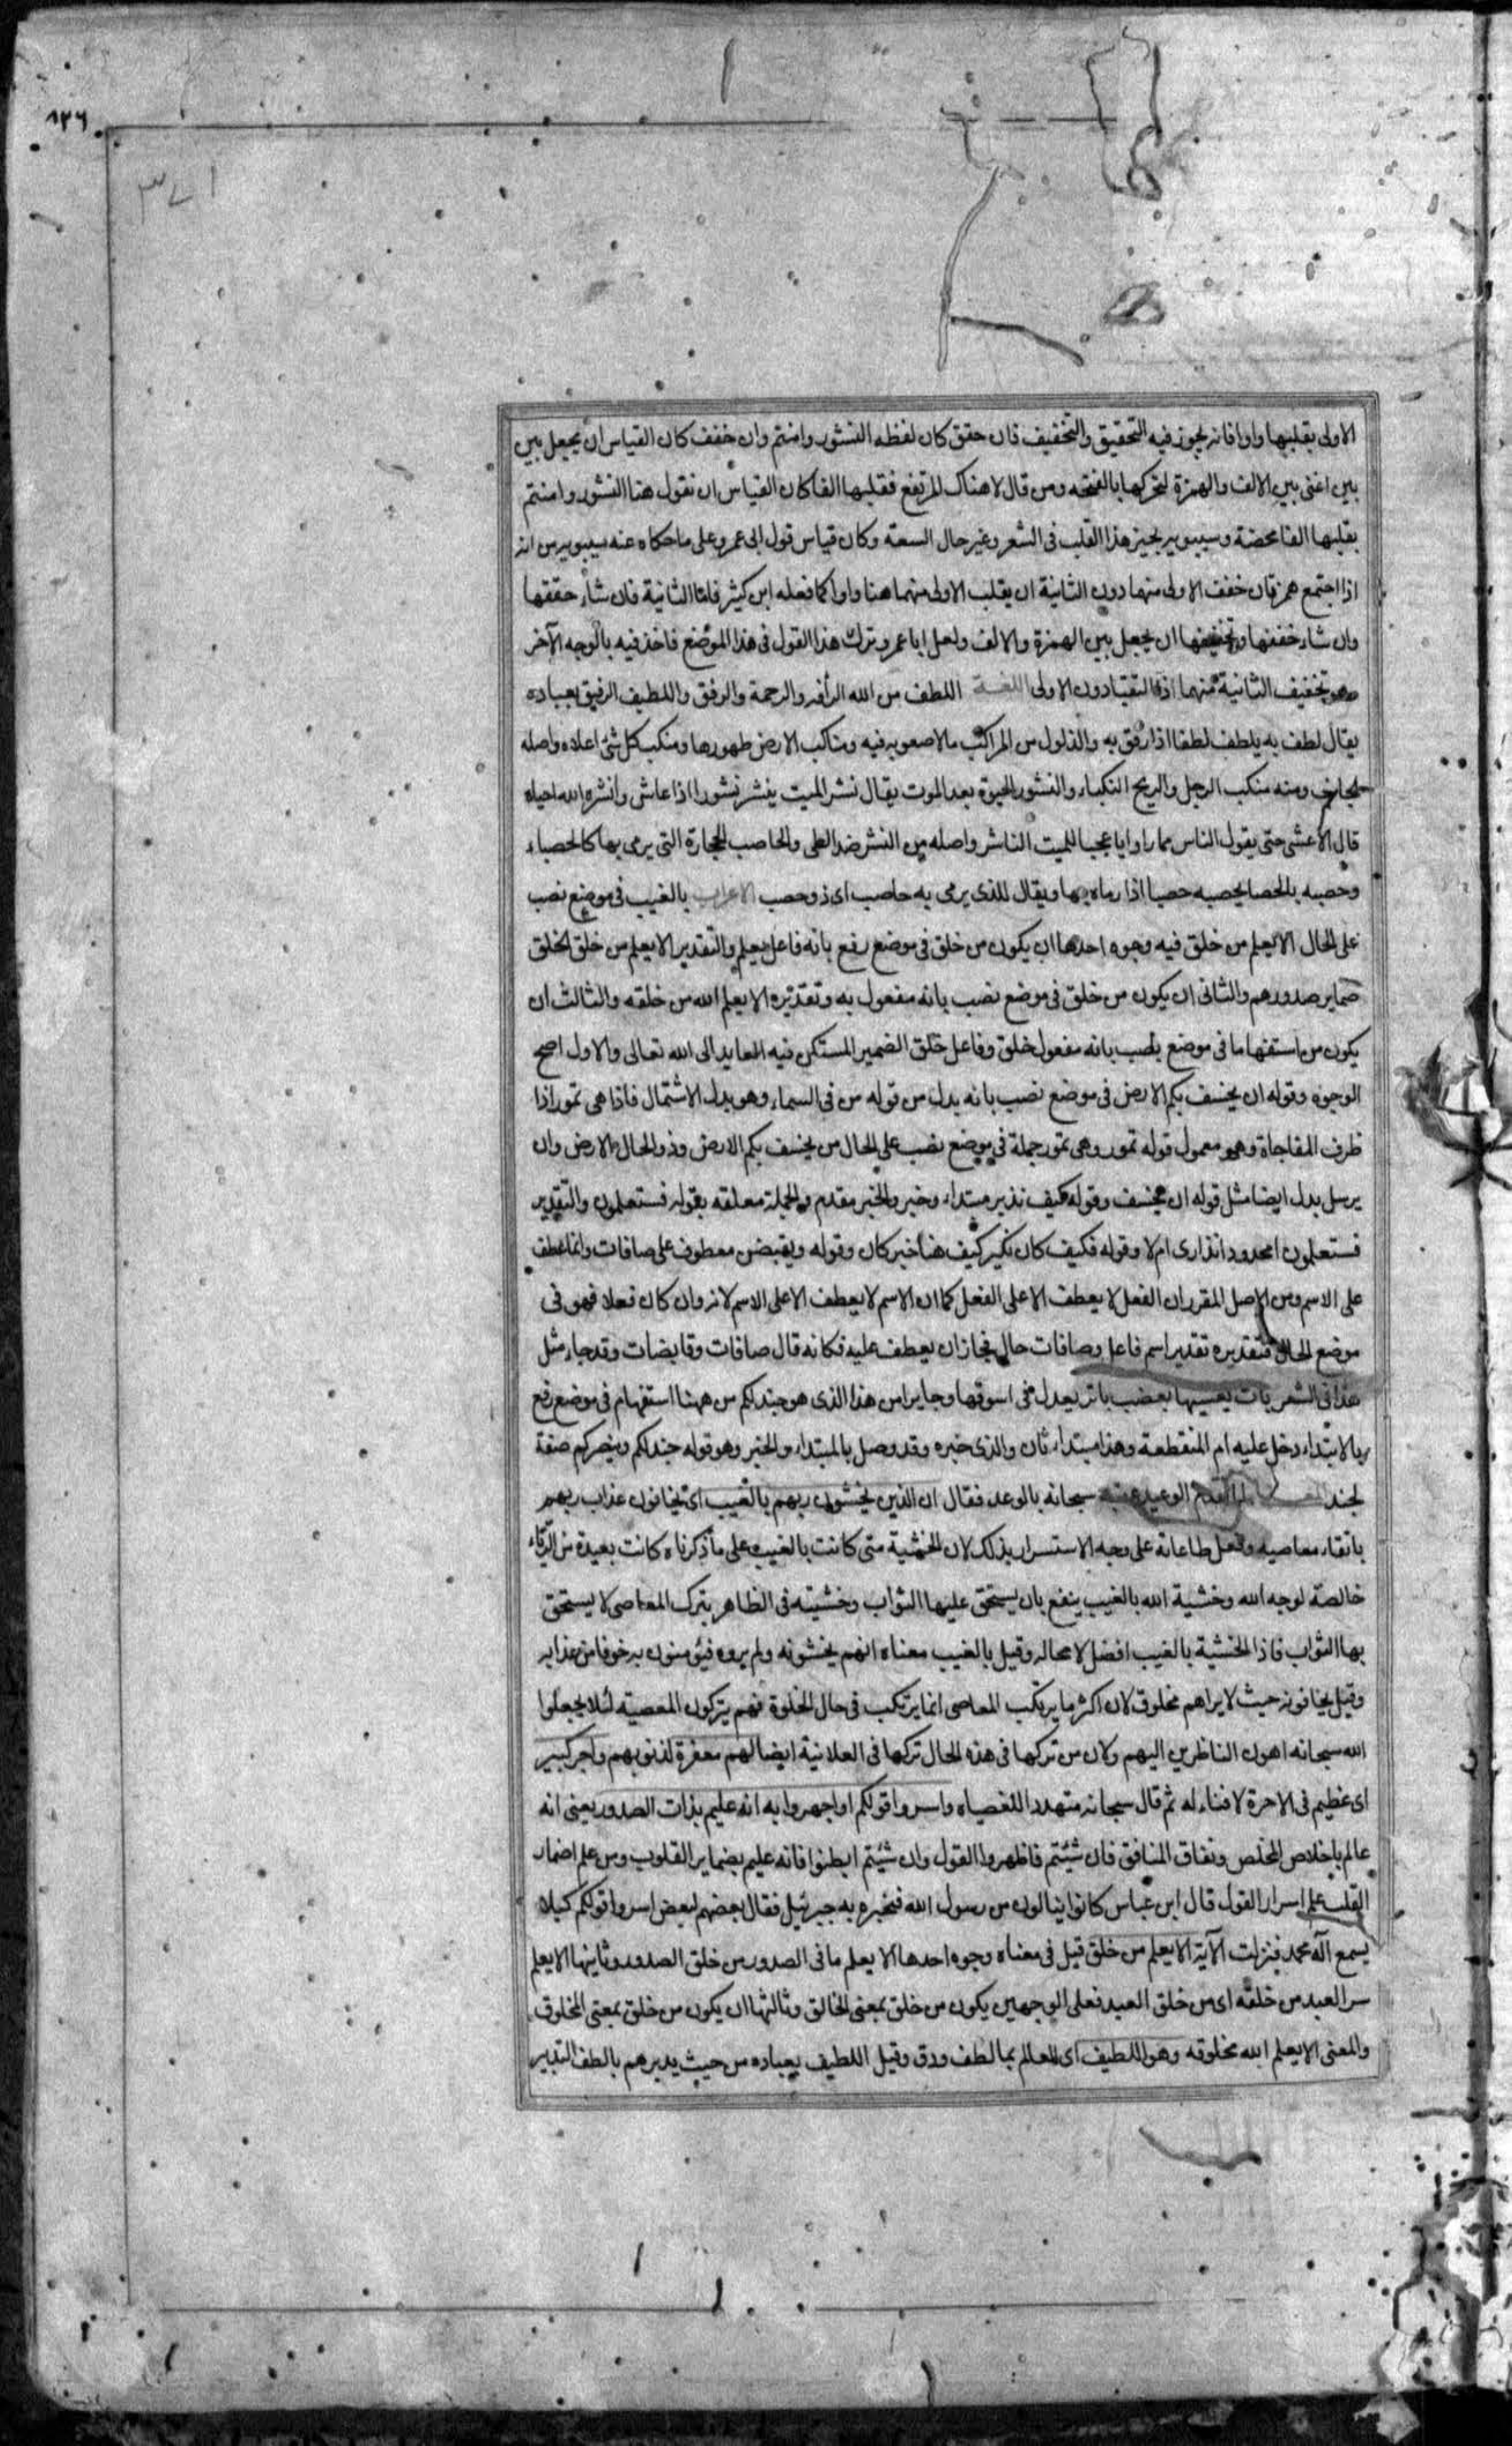 ١٣٦
٣٧١
الاولى بقلبها واوا فانه يجوز فيه التحقيق والتخفيف فان حقق كان لفظه النشور وامنتم وان خفف كان القياس ان يجعل بين
بين اعنى بين الالف والهمزة لتحركها بالفتحه ومن قال لا هناك المرتفع فقلبها الفا كان القياس ان نقول هنا النشور وامنتم
بقلبها الفا محضة وسيبويه يجيز هذا القلب فى الشعر وغير حال السعة وكان قياس قول ابى عمرو على ما حكاه عنه سيبويه من انه
اذا اجتمع همزتان خفف الاولى منهما دون الثانية ان يقلب الاولى منهما هنا واوا كما فعله ابن كثير فاما الثانية فان شاء حققها
وان شاء خففها وتخفيفها ان يجعل بين الهمزة والالف ولعل ابا عمرو ترك هذا القول فى هذا الموضع فاخذ فيه بالوجه الآخر
وهو تخفيف الثانية منهما اذا التقيا دون الاولى اللغــة اللطف من الله الرأفه والرحمة والرفق واللطيف الرفيق بعباده
يقال لطف به يلطف لطفا اذا رفق به والذلول من المراكب ما لا صعوبه فيه ومناكب الارض ظهورها ومنكب كل شئ اعلاه واصله
الجانب ومنه منكب الرجل والريح النكباء والنشور الحيوة بعد الموت يقال نشر الميت ينشر نشورا اذا عاش وانشره الله احياه
قال الاعشى حتى يقول الناس مما راوا يا عجبا للميت الناشر واصله من النشر ضد الطى والحاصب الحجارة التى يرمى بها كالحصباء
وحصبه بالحصا يحصبه حصبا اذا رماه بها ويقال للذى يرمى به حاصب اى ذو حصب الاعراب بالغيب فى موضع نصب
على الحال الا يعلم من خلق فيه وجوه احدها ان يكون من خلق فى موضع رفع بانه فاعل يعلم والتقدير الا يعلم من خلق الخلق
ضماير صدورهم والثانى ان يكون من خلق فى موضع نصب بانه مفعول به وتقديره الا يعلم الله من خلقه والثالث ان
يكون من استفهاما فى موضع نصب بانه مفعول خلق وفاعل خلق الضمير المستكن فيه العايد الى الله تعالى والاول اصح
الوجوه وقوله ان يخسف بكم الارض فى موضع نصب بانه بدل من قوله من فى السماء وهو بدل الاشتمال فاذا هى تمور اذا
ظرف المفاجاة وهو معمول قوله تمور وهى تمور جملة فى موضع نصب على الحال من يخسف بكم الارض وذو الحال الارض وان
يرسل بدل ايضا مثل قوله ان يخسف وقوله كيف نذير مبتداء وخبر والخبر مقدم والجملة معلقه بقوله فستعلمون والتقدير
فستعلمون امحدود انذارى ام لا وقوله فكيف كان نكير كيف هنا خبر كان وقوله ويقبضن معطوف على صافات وانما عطف
على الاسم ومن الاصل المقرر ان الفعل لا يعطف الا على الفعل كما ان الاسم لا يعطف الا على الاسم لانه وان كان فعلا فهو فى
موضع الحال فتقديره تقدير اسم فاعل وصافات حال فجاز ان يعطف عليه فكانه قال صافات وقابضات وقد جاء مثل
هذا فى الشعر بات يعشيها بعضب باتر يعدل فى اسوقها وجاير امن هذا الذى هو جند لكم من ههنا استفهام فى موضع رفع
بالابتداء دخل عليه ام المنقطعة وهذا مبتداء ثان والذى خبره وقد وصل بالمبتداء والخبر وهو قوله جند لكم وينصركم صفة
لجند لما تقدم الوعيد عقبه سبحانه بالوعد فقال ان الذين يخشون ربهم بالغيب اى يخافون عذاب ربهم
باتقاء معاصيه وفعل طاعاته على وجه الاستسرار بذلك لان الخشية متى كانت بالغيب على ما ذكرناه كانت بعيدة من الرّياء
خالصة لوجه الله وخشية الله بالغيب ينفع بان يستحق عليها الثواب وخشيته فى الظاهر بترك المعاصى لا يستحق
بها الثواب فاذا الخشية بالغيب افضل لا محاله وقيل بالغيب معناه انهم يخشونه ولم يروه فيؤمنون به خوفا من عذابه
وقيل يخافونه حيث لا يراهم مخلوق لان اكثر ما يرتكب المعاصى انما يرتكب فى حال الخلوة فهم يتركون المعصية لئلا يجعلوا
الله سبحانه اهون الناظرين اليهم ولان من تركها فى هذه الحال تركها فى العلانية ايضا لهم مغفرة لذنوبهم واجر كبير
اى عظيم فى الاخرة لا فناء له ثم قال سبحانه متهددا للعصاه واسروا قولكم او اجهروا به انه عليم بذات الصدور يعنى انه
عالم باخلاص المخلص ونفاق المنافق فان شئتم فاظهروا القول وان شئتم ابطنوا فانه عليم بضماير القلوب ومن علم اضمار
القلب علم اسرار القول قال ابن عباس كانوا ينالون من رسول الله فيخبره به جبرئيل فقال بعضهم لبعض اسروا قولكم كيلا
يسمع اله محمد فنزلت الآية الا يعلم من خلق قيل فى معناه وجوه احدها الا يعلم ما فى الصدور من خلق الصدور وثانيها الا يعلم
سر العبد من خلقه اى من خلق العبد فعلى الوجهين يكون من خلق بمعنى الخالق وثالثها ان يكون من خلق بمعنى المخلوق
والمعنى الا يعلم الله مخلوقه وهو اللطيف اى العالم بما لطف ودق وقيل اللطيف بعباده من حيث يدبرهم بالطف التدبير